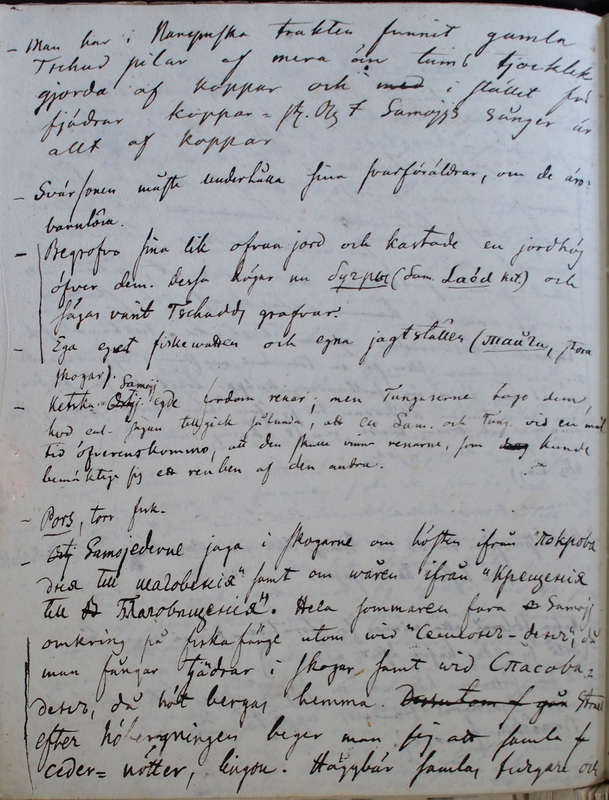 – Man har i Narymska trakten funnit gamla
Tschud pilar af mera än tums tjocklek
gjorda af koppar och med i stället för
fjädrar koppar- st. Samojs sånger är
allt af koppar
– Svärsonen måste underhålla sina svärföräldrar, om de äro
barnlösa.
– Begrofvo sina lik ofvan jord och kastade en jordhög
öfver dem. Dessa högar nu бугры (Sam. Laéd) och
sägas varit Tschudds grafvar.
– Ega eget fiskewatten och egna jagtställen (тайги, stora
skogar).
– Ketsk. Samoj. egde fordom renar; men Tunguserne togo dem,
hvd enl. sagan tillgick sålunda, att en Sam. och Tung. vid en mål-
tid öfverenskommo, att den skulle vinna renarne, som kunde
bemäktiga sig ett renben af den andra.
– Pors, torr fisk.
– Samojederne jaga i skogarne om hösten ifrån "Покрова
дня till шаговенія" samt om wåren ifrån "Крещенія
till Благовещенія". Hela sommaren fara Samoj
omkring på fiskafänge utom wid "Семенов-день", då
man fångar tjädrar i skogar samt wid Спасова-
день, då höet bergas hemma. Dessutom Strax
efter höbergningen beger man sig att samla
ceder- nötter, lingon. Häggbär samlas och